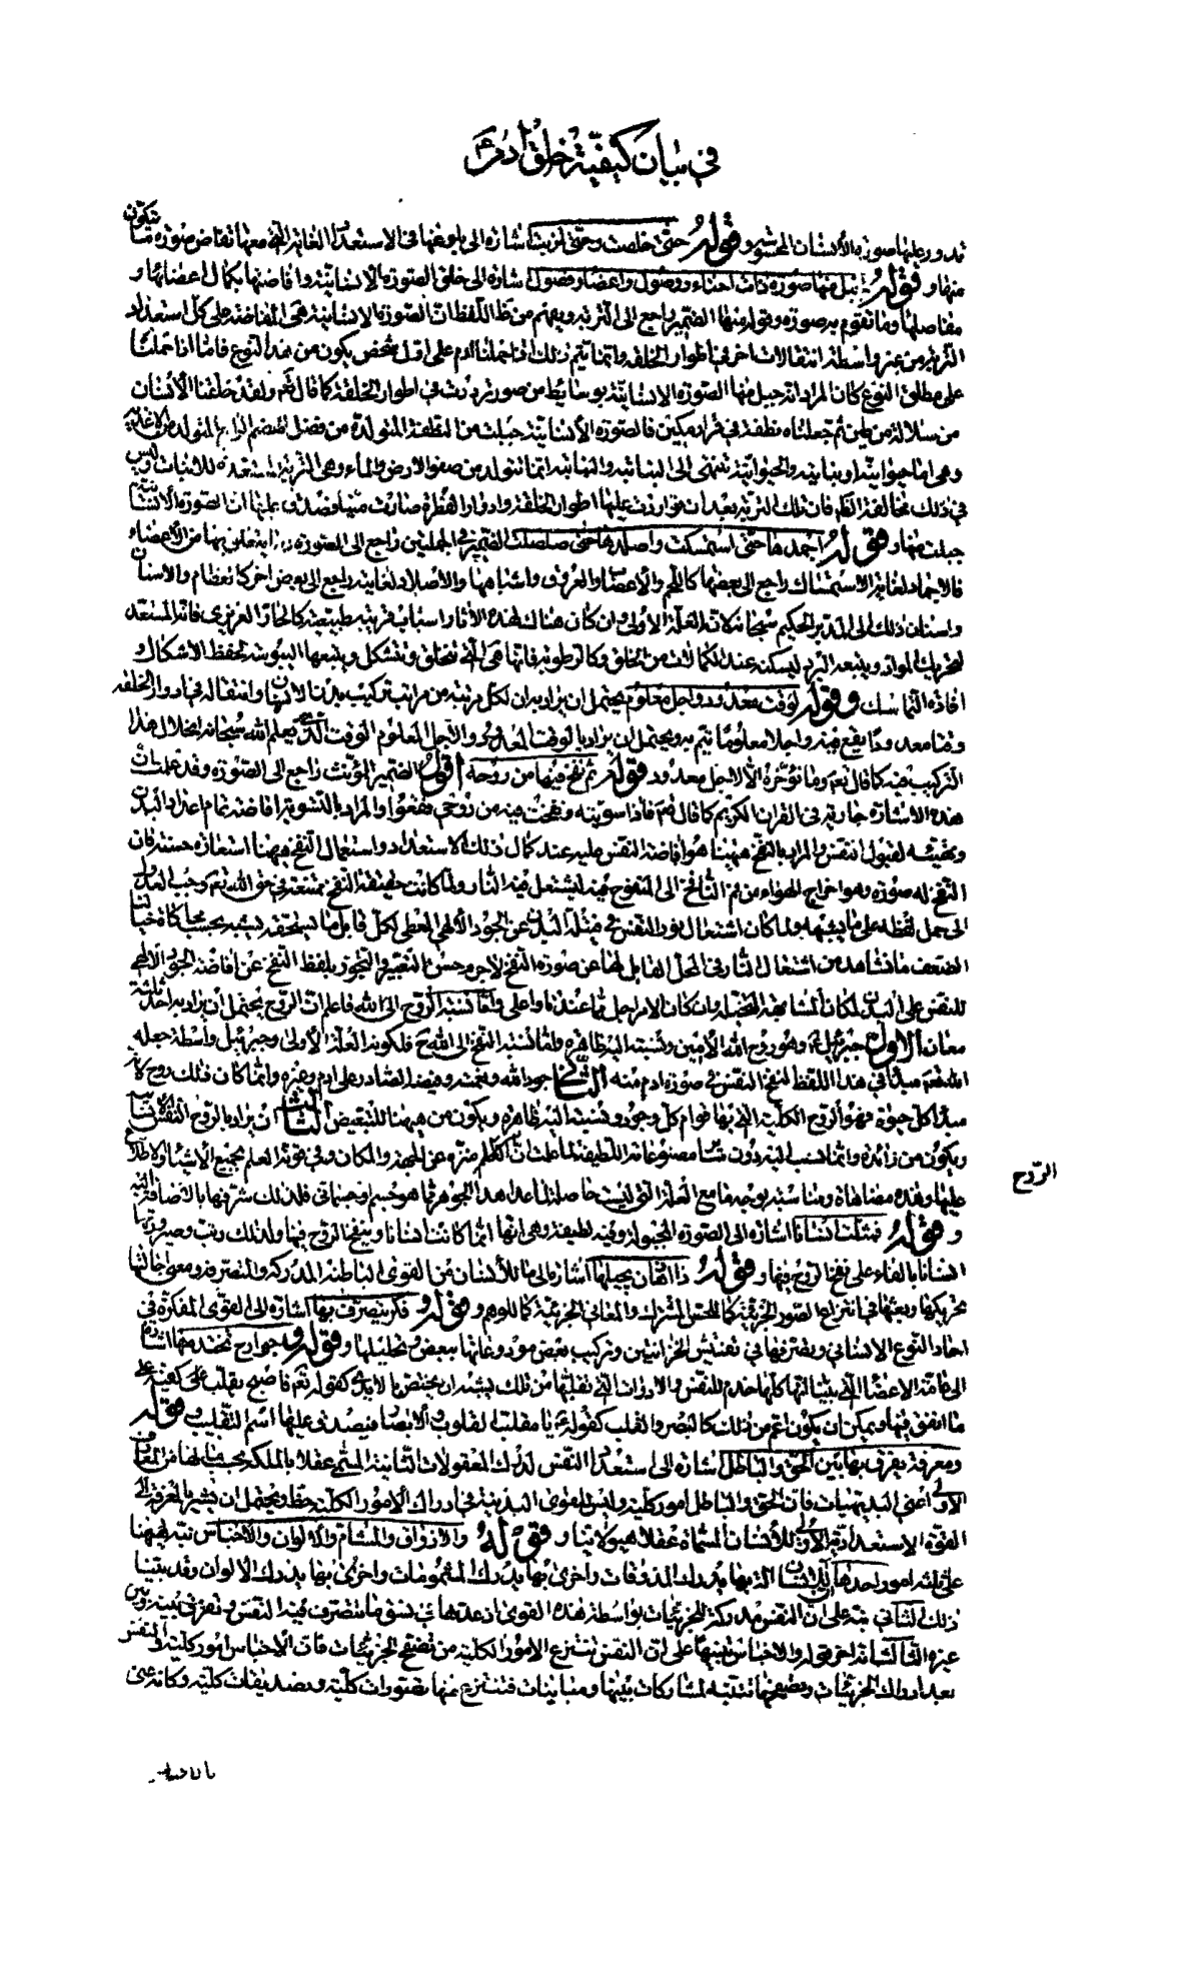 في بيان كيفيّة خلق ادم ع
تدور عليها صورة الأنسان المحسوسة وقوله حتى خلصت وحتى لزبت اشارة الى بلوغها في الاستعداد الغاية التي معها تفاض صورة ما يتكون
منها وقوله فجبل منها صورة ذات احناء ووصول واعضاء وفصول اشارة الى خلق الصورة الانسانية وافاضتها بكمال اعضائها و
مفاصلها وما تقوم به صورة وقوله منها الضمير راجع الى التربة ويفهم من هذا اللفظ ان الصورة الانسانية هي المفاضة على كمال استعداد
التربة من غير واسطة انتقالات اخر في اطوار الخلقة وانما يتم ذلك اذا حملنا ادم على اول شخص يكون من هذا النوع فاما اذا حملنا
على مطلق النوع كان المراد انه جبل منها الصورة الانسانية بوسائط من صور تردّدت في اطوار الخلقة كما قال تعم ولقد خلقنا الأنسان
من سلالة من طين ثم جعلناه نطفة في قرار مكين فالصورة الأنسانية جبلت من النطفة المتولدة من فضل الهضم الرابع المتولد من الاغذية
وهي اما حيوانية او نباتية والحيوانية تنتهي الى النباتية والنباتية انما تتولد من صفو الارض والماء وهي التربة المستعدة للانبات وليس
في ذلك مخالفة الظاهر فان تلك التربة بعد ان تواردت عليها اطوار الخلقة وادوار الفطرة صارت منيا فصدق عليها ان الصورة الانسانية
جبلت منها وقوله اجمدها حتى استمسكت واصلدها حتى صلصلت الضمير في الجملتين راجع الى الصورة وما يتعلق بها من الأعضاء
فالاجماد لغاية الاستمساك راجع الى بعضها كاللحم والاعصاب والعروق واشباهها والأصلاد لغاية راجع الى بعض اخر كالعظام والاسنان
واسناد ذلك الى المدبر الحكيم سبحانه لانه العلة الاولى وان كان هناك لهذه الاثار اسباب قريبة طبيعية كالحار الغريزي فانه المستعد
لتحريك المواد ويتبعه البرد ليسكنه عند الكمالات من الخلق وكالرطوبة فانها هي التي تتخلق وتتشكل ويتبعها اليبوسة لحفظ الاشكال و
افادة التماسك وقوله لوقت معدود واجل معلوم يحتمل ان يراد به ان لكل مرتبة من مراتب تركيب بدن الانسان وانتقاله في ادوار الخلقة
وقتا معدودا يقع فيه واجلا معلوما يتم به ويحتمل ان يراد بالوقت المعدود والأجل المعلوم الوقت الذي يعلم الله سبحانه انحلال هذا
التركيب فيه كما قال تعم وما نؤخره الا لاجل معدود قوله ثم نفخ فيها من روحه اقول الضمير المؤنث راجع الى الصورة وقد علمت ان
هذه الاشارة جارية في القران الكريم كما قال تعم فاذا سويته ونفخت فيه من روحي فقعوا والمراد بالتسوية افاضة تمام اعداد البدن
وتهيئته لقبول النفس والمراد بالنفخ هيهنا هو افاضة النفس عليه عند كمال ذلك الاستعداد واستعمال النفخ هيهنا استعارة حسنة فان
النفخ له صورة وهو اخراج الهواء من فم النافخ الى المنفوخ فيه ليشتعل فيه النار ولما كانت حقيقة النفخ ممتنعة في حق الله تعم وجب العدول
الى حمل لفظه على ما يشبهه ولما كان اشتعال نور النفس في فتيلة البدن عن الجود الالهي المعطي لكل قابل ما يستحقه يشبه بحسب محاكاة خيالنا
الضعيف ما نشاهد من اشتعال النار في المحل القابل لها عن صورة النفخ لا جرم حسن التعبير والتجوز بلفظ النفخ عن افاضة الجود الالهي
للنفس على البدن لمكان المشابهة المتخيلة وان كان الامر اجل مما عندنا واعلى وامّا نسبة الروح الى الله فاعلم ان الروح يحتمل ان يراد به احد ثلثة
معان الاول جبرئيل ع وهو روح الله الأمين ونسبته اليه ظاهرة وامّا نسبة النفخ الى الله ح فلكونه العلة الاولى وجبرئيل واسطة جعله
الله تعم مبدأ في هذا اللفظ لنفخ النفس في صورة ادم منه الثاني جود الله ونعمته وفيضه الصادر على ادم وغيره وانما كان ذلك روحا لانه
مبدأ كل حيوة فهو الروح الكلية التي بها قوام كل وجود ونسبته اليه ظاهرة ويكون من هيهنا للتبعيض الثالث ان يراد بالروح النفس الانسانية
ويكون من زائدة وانما نسب اليه دون سائر مصنوعاته اللطيفة لما علمت ان الكلم منزه عن الجهة والمكان وفي قوته العلم بجميع الأشياء والاطلاع
عليها وهذه مضاهاة ومناسبة بوجه ما مع العلة الاولى ليست حاصلة لما عدا هذا الجوهر مما هو جسم او جسماني فلذلك شرفها بالاضافة اليه
وقوله فمثلت انسانا اشارة الى الصورة المجبولة وفيه لطيفة وهي انها انما كانت انسانا وبنفخ الروح فيها ولذلك رتب صيرورتها
انسانا بالفاء على نفخ الروح فيها وقوله ذا اذهان يجيلها اشارة الى ما للأنسان من القوى الباطنة المدركة والمتصرفة ومعنى اجالتها
تحريكها وبعثها في انتزاع الصور الجزئية كما للحس المشترك والمعاني الجزئية كما للوهم وقوله وفكر يتصرف بها اشارة الى القوى المفكرة في
احاد النوع الانساني وتصرفها في تفتيش الخزانتين وتركيب بعض مودوعاتها ببعض وتحليلها وقوله وجوارح تختدمها اشارة
الى عامة الاعضاء التي بينا انها كلها خدم للنفس والادوات التي تقلبها من ذلك يشبه ان يختص بالايدي كقوله تعم فاصبح يقلب كفيه على
ما انفق فيها ويمكن ان يكون اعم من ذلك كالبصر والقلب كقوله ع يا مقلب القلوب والأبصار فيصدق عليها اسم التقليب وقوله
ومعرفة يفرق بها بين الحق والباطل اشارة الى استعداد النفس لدرك المعقولات الثانية المسمى عقلا بالملكة بحسب ما لها من المعارف
الاولى اعني البديهيات فان الحق والباطل امور كلية وليس للقوى البدنية في ادراك الأمور الكلية حظ ويحتمل ان يشير بالمعرفة الى
القوة الاستعدادية الأولى للأنسان المسماة عقلا هيولانيا وقوله والاذواق والمشام والألوان والاجناس تنبيه هيهنا
على ثلثة امور احدها ان للانسان الة بها يدرك المذوقات واخرى بها يدرك المشمومات واخرى بها يدرك الالوان وقد بينا
ذلك الثاني نبه على ان النفس مدركة للجزئيات بواسطة هذه القوى اذ عدها في نسق ما تتصرف فيه النفس وتفرق بينه وبين
غيره الثالث انه اخر قوله والاجناس تنبيها على ان النفس تنتزع الامور الكلية من تصفح الجزئيات فان الأجناس امور كلية والنفس
بعد ادراك الجزئيات وتصفحها تتنبه لمشاركات بينها ومباينات فتنتزع منها تصورات كلية وتصديقات كلية وكانه عنى
الرّوح
بالاجناس